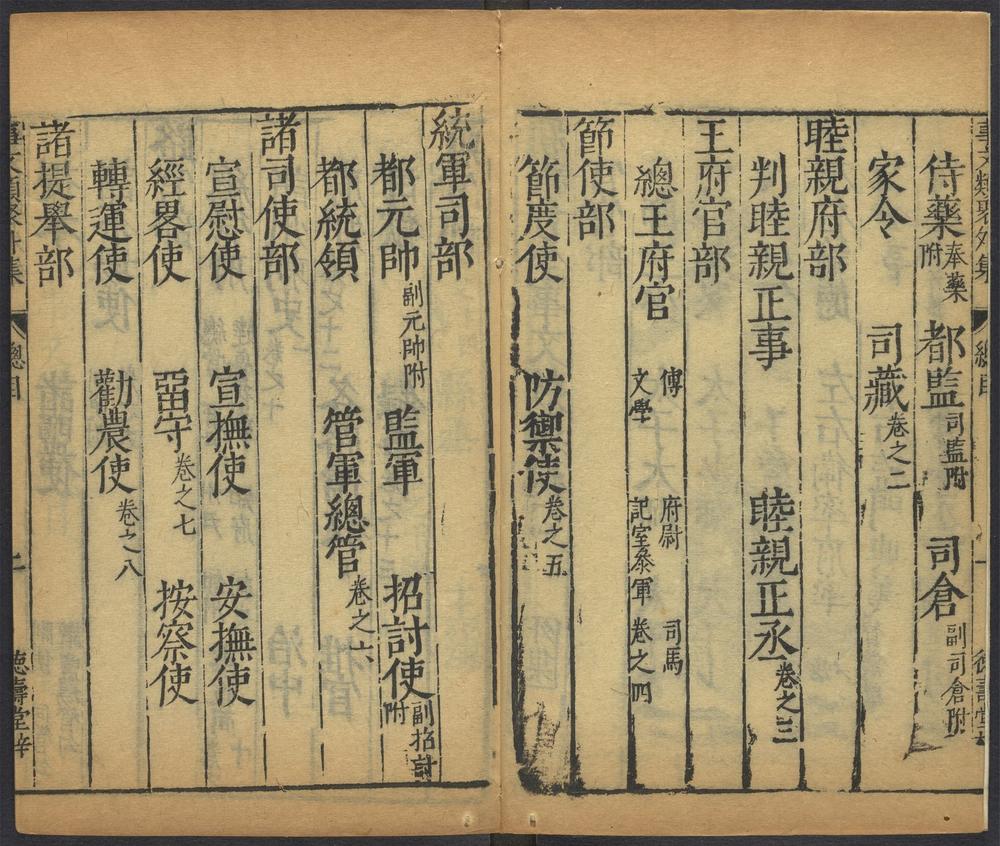 侍藥奉藥附 都監司監附 司倉副司倉附
家令 司藏卷之二
睦親府部
判睦親正事 睦親正丞卷之三
王府官部
總王府官 傅 文學 府尉 記室叅軍 司馬 卷之四
節使部
節度使 防禦使卷之五
統軍司部
都元帥副元帥附 監軍 招討使副招討附
都統領 管軍總管卷之六
諸司使部
宣慰使 宣撫使 安撫使
經畧使 留守卷之七 按察使
轉運使 勸農使卷之八
諸提舉部
事文類聚外集 總目 二 德壽堂梓